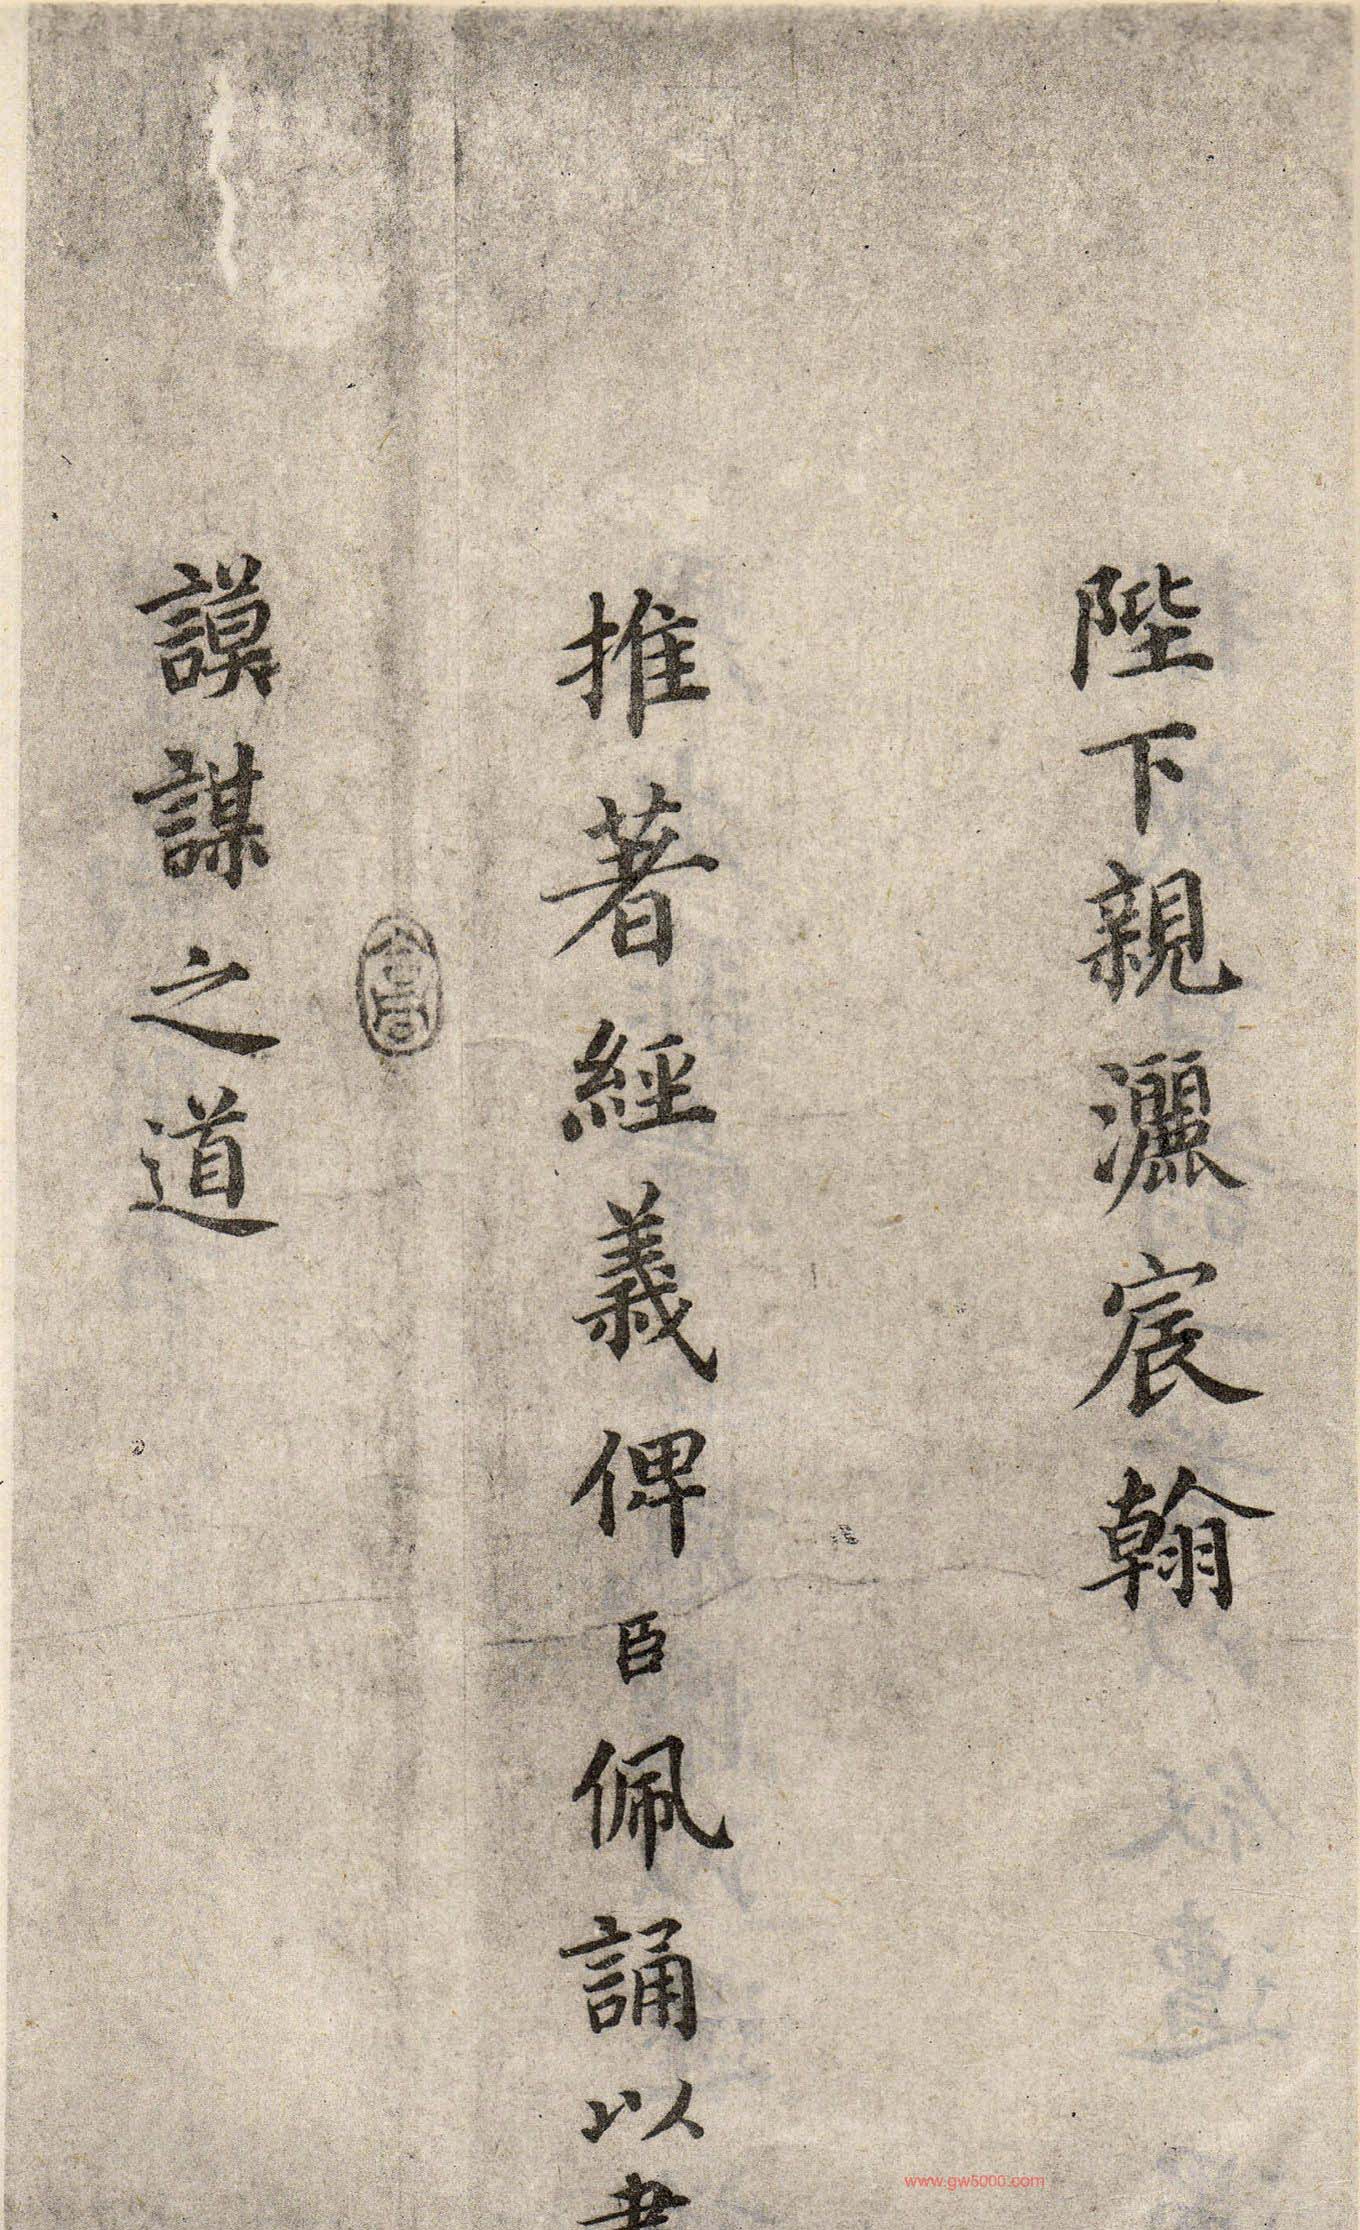 陛下親灑宸翰
推著經義俾臣佩誦以
謨謀之道
www.gw5000.com